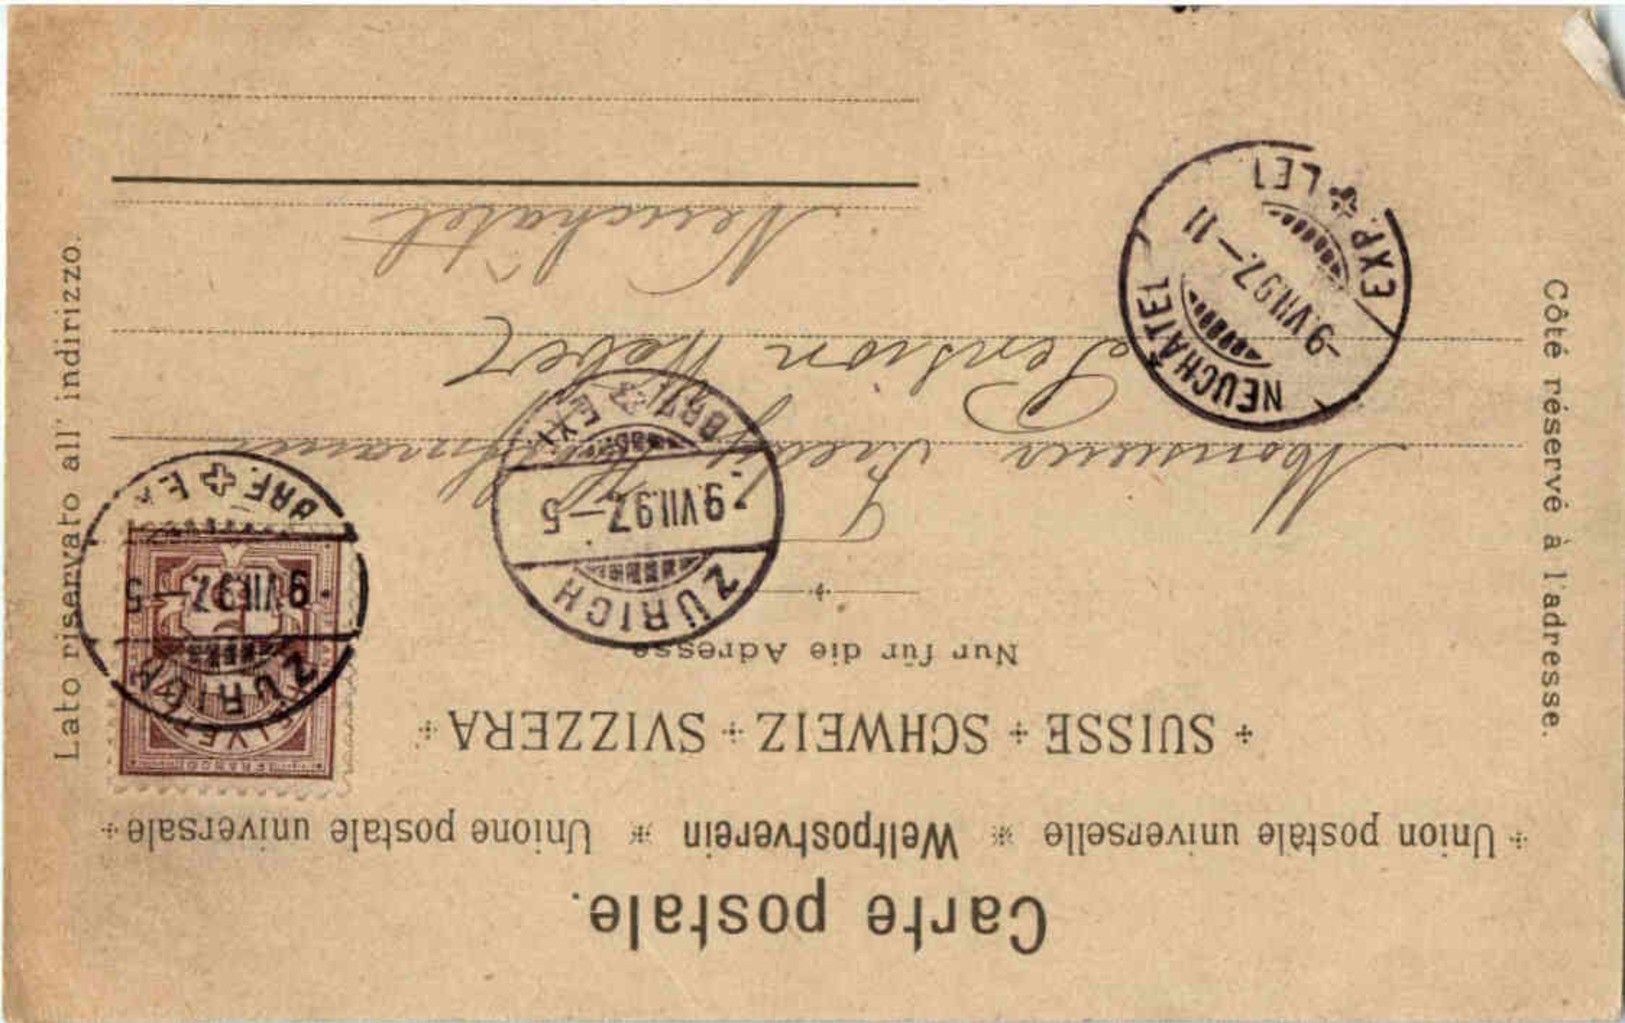 Carte postale.
Union postale universelle * Weltpostverein * Unione postale universale
SUISSE + SCHWEIZ + SVIZZERA
Nur für die Adresse
Côté réservé à l'adresse.
Lato riservato all' indirizzo.
ZÜRICH
9.VII.97.–5
BRF. EX
ZÜRICH
9.VII.97.–5
BRF. EX
HELVETIA
FRANCO
Monsieur
Pension Weber
Neuchâtel
NEUCHÂTEL
–9.VII.97.–11
EXP. LET